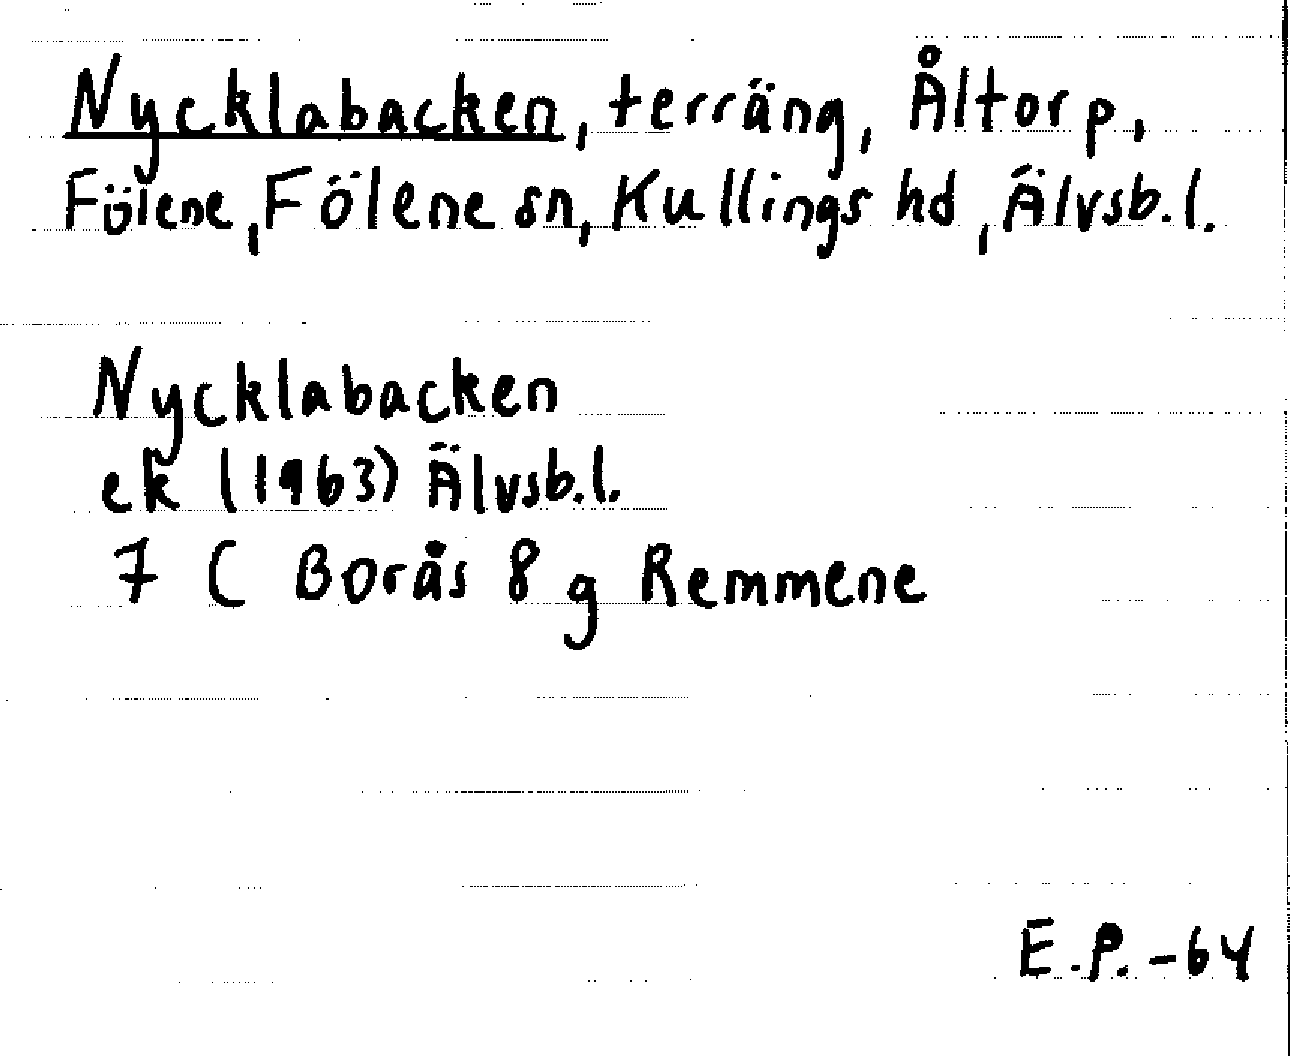 Nycklabacken, terräng, Åltorp,
Fölene, Fölene sn, Kullings hd, Älvsb.l.
Nycklabacken
ek (1963) Älvsb.l.
7 C Borås 8 g Remmene
E.P.-64